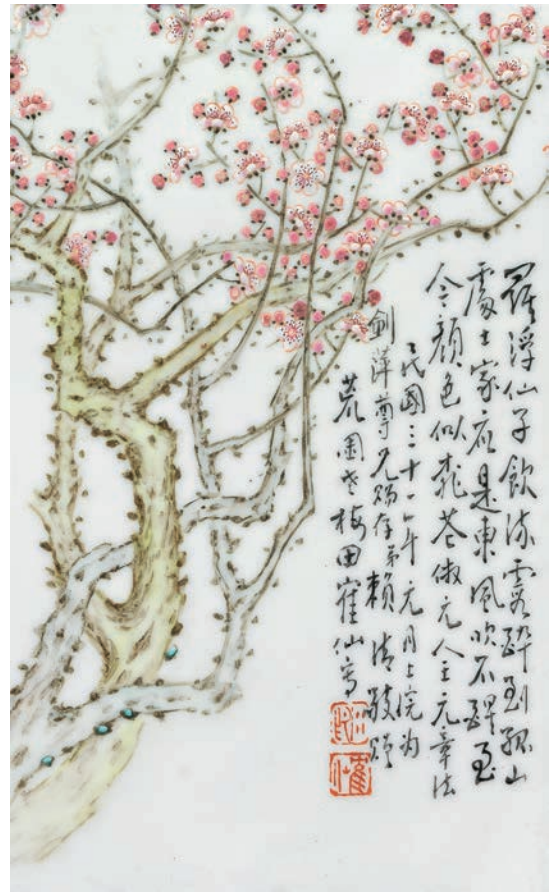 羅浮仙子飲流霞醉到孤山
處士家應是東風吹不醒至
今顏色似桃花倣元人王元章法
民國三十一年元月上浣為
劍萍尊兄賜存弟賴清敬贈
荒園老梅田寉仙寫